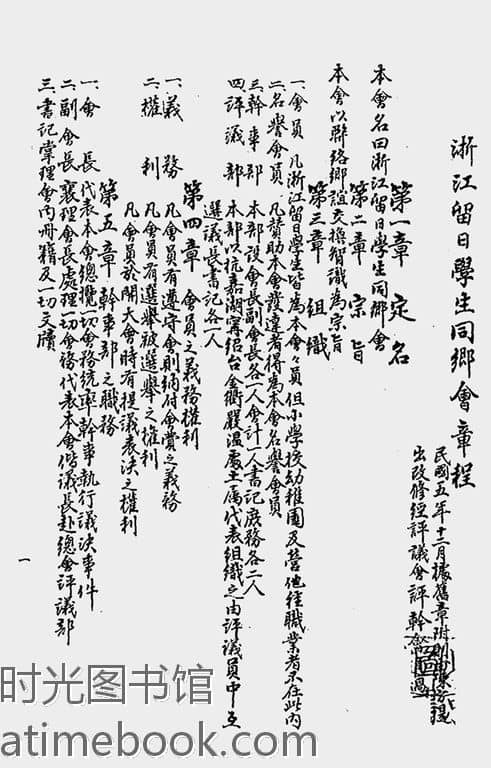 浙江留日學生同鄉會章程
民國五年十二月據舊章附則
出改修經評議會評幹
第一章 定名
本會名曰浙江留日學生同鄉會
第二章 宗旨
本會以聯絡鄉誼交換智識為宗旨
第三章 組織
一會員 凡浙江留日學生皆為本會々員但小學校幼稚園及營他種職業者不在此內
二名譽會員 凡贊助本會發達者得為本會名譽會員
三幹事部 本部設會長副會長各一人會計一人書記庶務各二人
四評議部 本部以杭嘉湖寧紹台金衢嚴溫處十一屬代表組織之由評議員中互
選議長書記各一人
第四章 會員之義務權利
一、義務 凡會員有遵守會則納付會費之義務
二、權利 凡會員有選舉被選舉之權利
凡會員於開大會時有提議表決之權利
第五章 幹事部之職務
一會長 代表本會總攬一切會務統率幹事執行議決事件
二副會長 襄理會長處理一切會務代表本會偕議長赴總會評議部
三書記 掌理會內冊籍及一切文牘
一
时光图书馆
atimebook.com